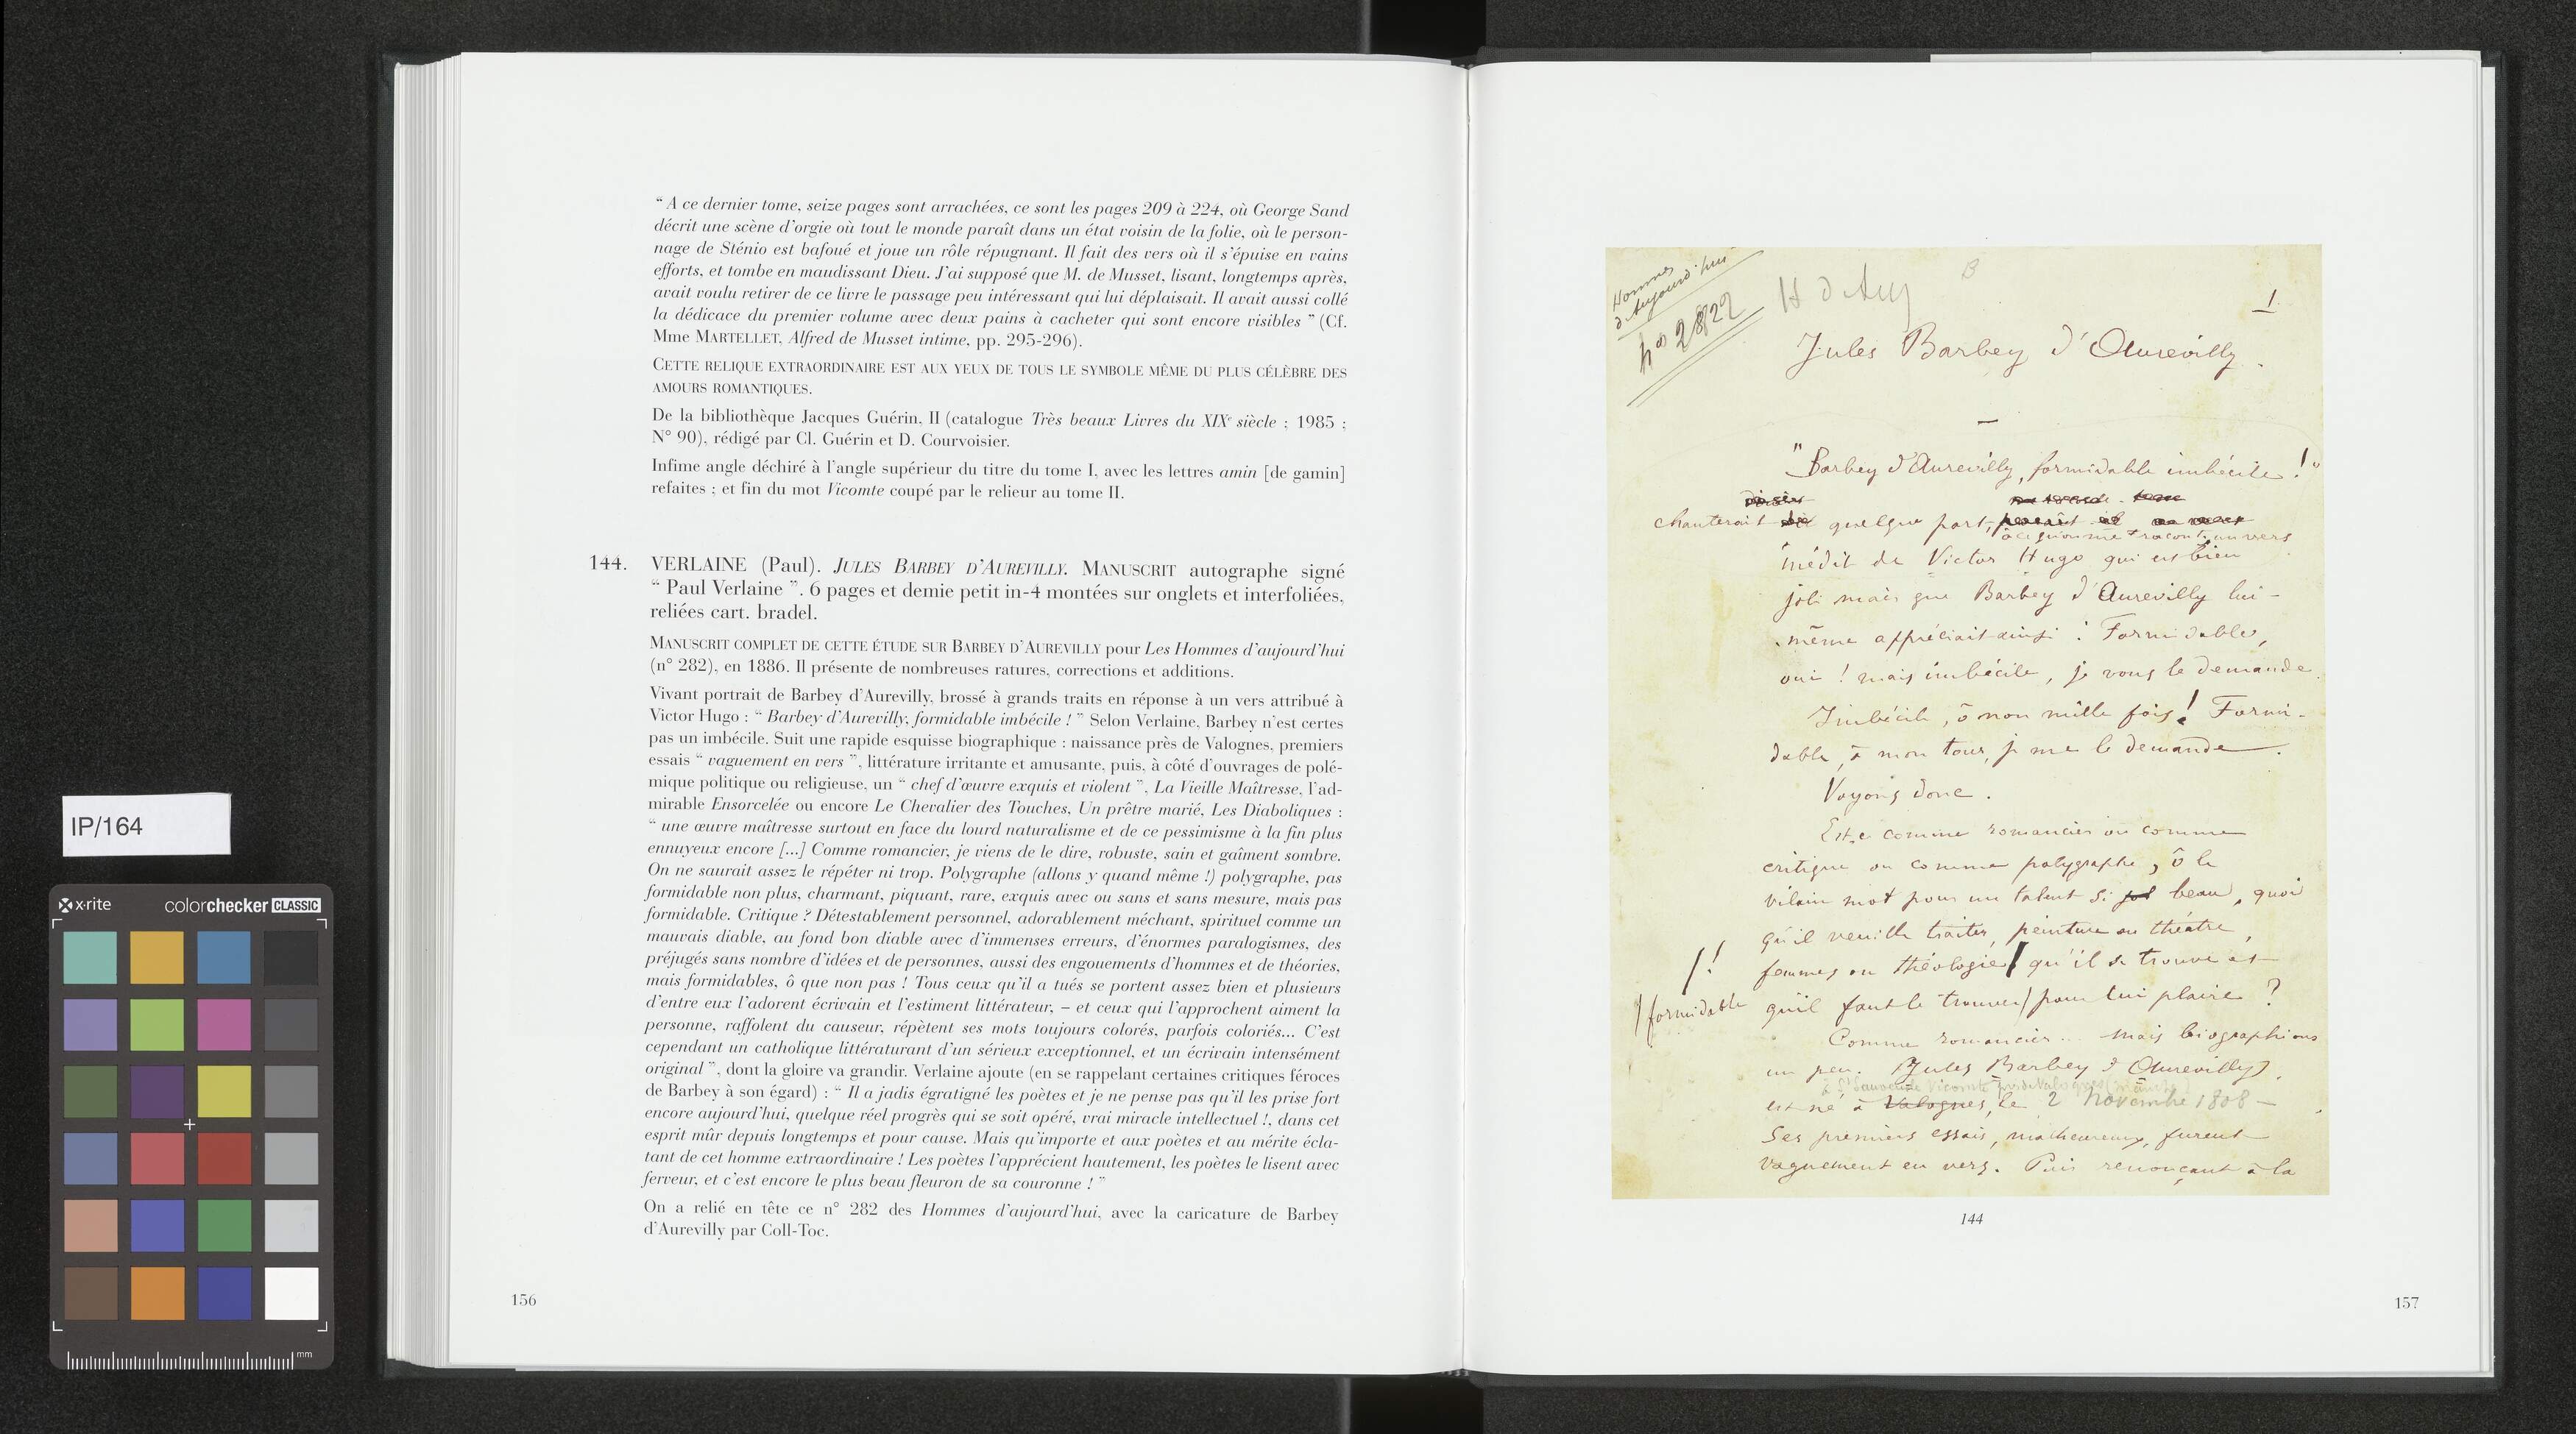 “ A ce dernier tome, seize pages sont arrachées, ce sont les pages 209 à 224, où George Sand
décrit une scène d’orgie où tout le monde paraît dans un état voisin de la folie, où le person-
nage de Sténio est bafoué et joue un rôle répugnant. Il fait des vers où il s’épuise en vains
efforts, et tombe en maudissant Dieu. J’ai supposé que M. de Musset, lisant, longtemps après,
avait voulu retirer de ce livre le passage peu intéressant qui lui déplaisait. Il avait aussi collé
la dédicace du premier volume avec deux pains à cacheter qui sont encore visibles ” (Cf.
Mme MARTELLET, Alfred de Musset intime, pp. 295-296).
CETTE RELIQUE EXTRAORDINAIRE EST AUX YEUX DE TOUS LE SYMBOLE MÊME DU PLUS CÉLÈBRE DES
AMOURS ROMANTIQUES.
De la bibliothèque Jacques Guérin, II (catalogue Très beaux Livres du XIXe siècle ; 1985 ;
N° 90), rédigé par Cl. Guérin et D. Courvoisier.
Infime angle déchiré à l’angle supérieur du titre du tome I, avec les lettres amin [de gamin]
refaites ; et fin du mot Vicomte coupé par le relieur au tome II.
144. VERLAINE (Paul). JULES BARBEY D’AUREVILLY. MANUSCRIT autographe signé
“ Paul Verlaine ”. 6 pages et demie petit in-4 montées sur onglets et interfoliées,
reliées cart. bradel.
MANUSCRIT COMPLET DE CETTE ÉTUDE SUR BARBEY D’AUREVILLY pour Les Hommes d’aujourd’hui
(n° 282), en 1886. Il présente de nombreuses ratures, corrections et additions.
Vivant portrait de Barbey d’Aurevilly, brossé à grands traits en réponse à un vers attribué à
Victor Hugo : “ Barbey d’Aurevilly, formidable imbécile ! ” Selon Verlaine, Barbey n’est certes
pas un imbécile. Suit une rapide esquisse biographique : naissance près de Valognes, premiers
essais “ vaguement en vers ”, littérature irritante et amusante, puis, à côté d’ouvrages de polé-
mique politique ou religieuse, un “ chef d’œuvre exquis et violent ”, La Vieille Maîtresse, l’ad-
mirable Ensorcelée ou encore Le Chevalier des Touches, Un prêtre marié, Les Diaboliques :
“ une œuvre maîtresse surtout en face du lourd naturalisme et de ce pessimisme à la fin plus
ennuyeux encore [...] Comme romancier, je viens de le dire, robuste, sain et gaîment sombre.
On ne saurait assez le répéter ni trop. Polygraphe (allons y quand même !) polygraphe, pas
formidable non plus, charmant, piquant, rare, exquis avec ou sans et sans mesure, mais pas
formidable. Critique ? Détestablement personnel, adorablement méchant, spirituel comme un
mauvais diable, au fond bon diable avec d’immenses erreurs, d’énormes paralogismes, des
préjugés sans nombre d’idées et de personnes, aussi des engouements d’hommes et de théories,
mais formidables, ô que non pas ! Tous ceux qu’il a tués se portent assez bien et plusieurs
d’entre eux l’adorent écrivain et l’estiment littérateur, – et ceux qui l’approchent aiment la
personne, raffolent du causeur, répètent ses mots toujours colorés, parfois coloriés... C’est
cependant un catholique littératurant d’un sérieux exceptionnel, et un écrivain intensément
original ”, dont la gloire va grandir. Verlaine ajoute (en se rappelant certaines critiques féroces
de Barbey à son égard) : “ Il a jadis égratigné les poètes et je ne pense pas qu’il les prise fort
encore aujourd’hui, quelque réel progrès qui se soit opéré, vrai miracle intellectuel !, dans cet
esprit mûr depuis longtemps et pour cause. Mais qu’importe et aux poètes et au mérite écla-
tant de cet homme extraordinaire ! Les poètes l’apprécient hautement, les poètes le lisent avec
ferveur, et c’est encore le plus beau fleuron de sa couronne ! ”
On a relié en tête ce n° 282 des Hommes d’aujourd’hui, avec la caricature de Barbey
d’Aurevilly par Coll-Toc.
156
Hommes
d'Aujourd'hui
H d Auj
1
Jules Barbey d'Aurevilly.
"Barbey d'Aurevilly, formidable imbécile !"
chanterait quelque part,
à ce qu'on me racont, un vers
inédit de Victor Hugo qui est bien
joli mais que Barbey d'Aurevilly lui-
même appréciait ainsi : Formidable,
oui ! mais imbécile, je vous le demande.
Imbécile, ô non mille fois ! Formi-
dable, à mon tour, je me le demande.
Voyons donc.
Est-ce comme romancier ou comme
critique ou comme polygraphe, ô le
vilain mot pour un talent si beau, quoi
qu'il veuille traiter, peinture ou théâtre,
/!
femmes ou théologie/ qu'il se trouve et
/formidable
qu'il faut le trouver/ pour lui plaire ?
Comme romancier... mais biographions
un peu. Jules Barbey d'Aurevilly
à St Sauveur le Vicomte près de Valognes (Manche)
est né à Valognes, le 2 Novembre 1808 —
Ses premiers essais, malheureux, furent
vaguement en vers. Puis renonçant à la
144
157
IP/164
x·rite colorchecker CLASSIC
mm